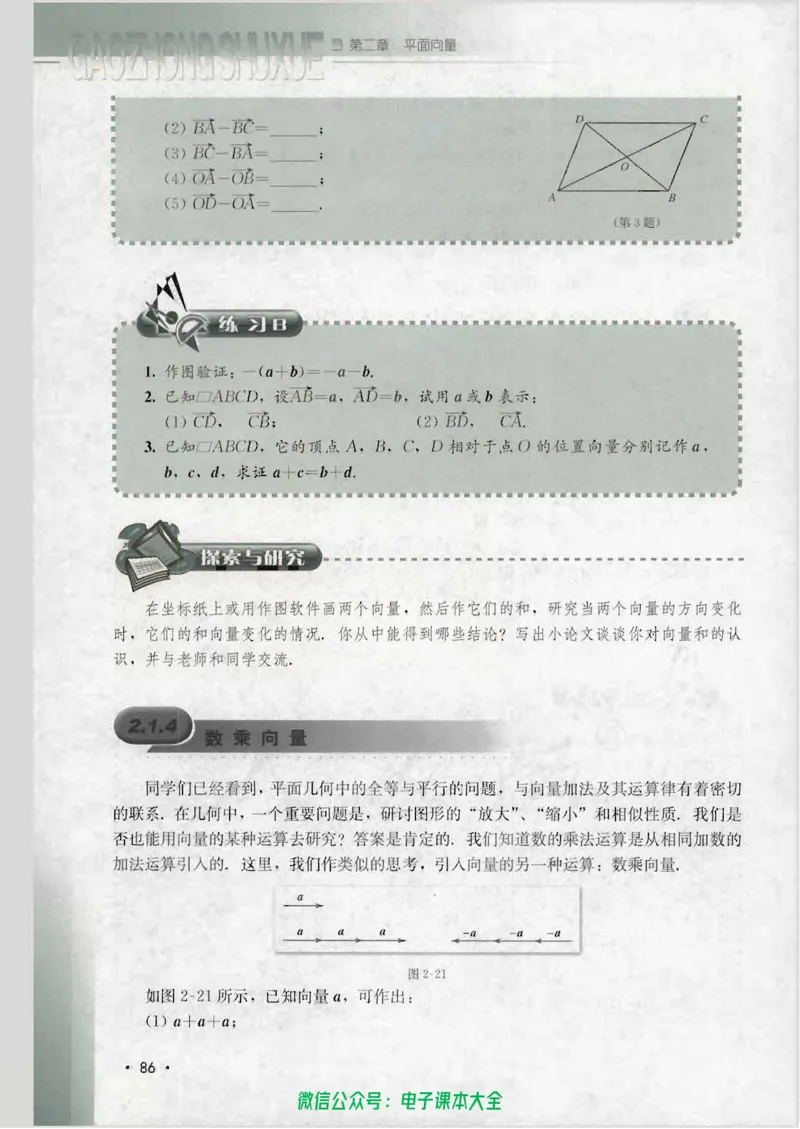 GAOZHONGSHUXUE
第二章 平面向量
(2) BA−BC=______;
(3) BC−BA=______;
(4) OA−OB=______;
(5) OD−OA=______.
D C
O
A B
(第3题)
练习B
1. 作图验证：−(a+b)=−a−b.
2. 已知□ABCD，设AB=a，AD=b，试用 a 或 b 表示：
(1) CD， CB； (2) BD， CA.
3. 已知□ABCD，它的顶点 A，B，C，D 相对于点 O 的位置向量分别记作 a，
b，c，d，求证 a+c=b+d.
探索与研究
在坐标纸上或用作图软件画两个向量，然后作它们的和，研究当两个向量的方向变化
时，它们的和向量变化的情况．你从中能得到哪些结论？写出小论文谈谈你对向量和的认
识，并与老师和同学交流．
2.1.4 数乘向量
同学们已经看到，平面几何中的全等与平行的问题，与向量加法及其运算律有着密切
的联系．在几何中，一个重要问题是，研讨图形的“放大”、“缩小”和相似性质．我们是
否也能用向量的某种运算去研究？答案是肯定的．我们知道数的乘法运算是从相同加数的
加法运算引入的．这里，我们作类似的思考，引入向量的另一种运算：数乘向量．
a
a a a −a −a −a
图 2-21
如图 2-21 所示，已知向量 a，可作出：
(1) a+a+a；
· 86 ·
微信公众号：电子课本大全